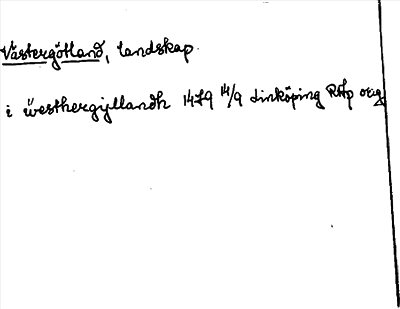 Västergötland, landskap.
i westhergijllandh 1479 14/9 Linköping RAp orig